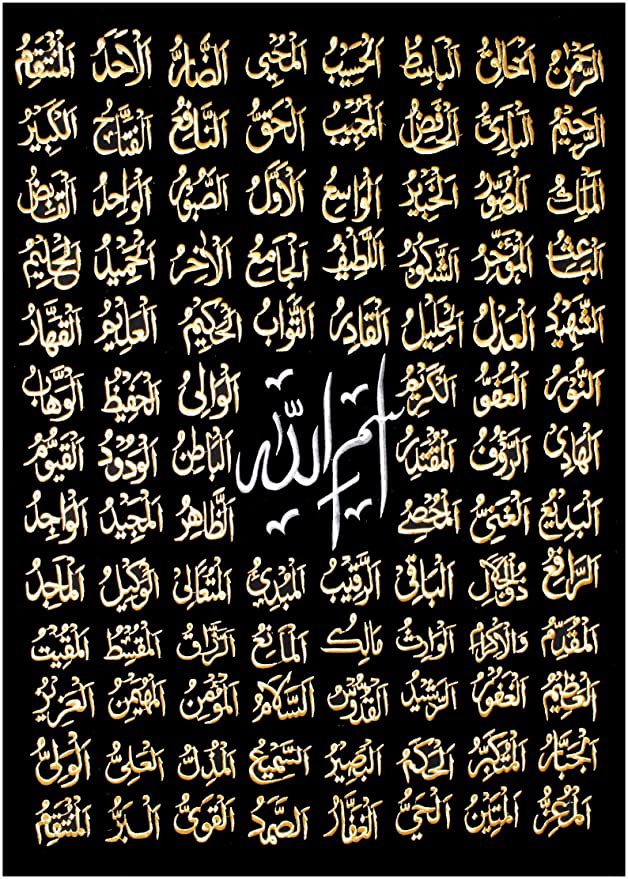 الرَّحْمٰنُ الْخَالِقُ الْبَاسِطُ الْحَسِيْبُ الْمُحْيِي الضَّارُّ الْاَحَدُ الْمُنْتَقِمُ
الرَّحِيْمُ الْبَارِئُ الْخَافِضُ الْمُجِيْبُ الْحَقُّ النَّافِعُ الْفَتَّاحُ الْكَبِيْرُ
الْمَلِكُ الْمُصَوِّرُ الْخَبِيْرُ الْوَاسِعُ الْاَوَّلُ الصَّبُوْرُ الْوَاحِدُ الْقَابِضُ
الْبَاعِثُ الْمُؤَخِّرُ الشَّكُوْرُ اللَّطِيْفُ الْجَامِعُ الْاٰخِرُ الْحَمِيْدُ الْحَلِيْمُ
الشَّهِيْدُ الْعَدْلُ الْجَلِيْلُ الْقَادِرُ التَّوَّابُ الْحَكِيْمُ الْعَلِيْمُ الْقَهَّارُ
النُّوْرُ الْعَفُوُّ الْكَرِيْمُ الْوَالِى الْحَفِيْظُ الْوَهَّابُ
الْهَادِى الرَّؤُفُ الْمُقْتَدِرُ الْبَاطِنُ الْوَدُوْدُ الْقَيُّوْمُ
اسم الله
الْبَدِيْعُ الْغَنِىُّ الْمُحْصِى الظَّاهِرُ الْمَجِيْدُ الْوَاجِدُ
الرَّافِعُ ذُوالْجَلَالِ الْبَاقِى الرَّقِيْبُ الْمُبْدِئُ الْمُتَعَالِى الْوَكِيْلُ الْمَاجِدُ
الْمُقَدِّمُ وَالْاِكْرَامِ الْوَارِثُ مَالِكُ الْمَانِعُ الرَّزَّاقُ الْمُقْسِطُ الْمُقِيْتُ
الْعَظِيْمُ الْغَفُوْرُ الرَّشِيْدُ الْقُدُّوْسُ السَّلَامُ الْمُؤْمِنُ الْمُهَيْمِنُ الْعَزِيْزُ
الْجَبَّارُ الْمُتَكَبِّرُ الْحَكَمُ الْبَصِيْرُ السَّمِيْعُ الْمُذِلُّ الْعَلِىُّ الْوَلِىُّ
الْمُعِزُّ الْمَتِيْنُ الْحَىُّ الْغَفَّارُ الصَّمَدُ الْقَوِىُّ الْبَرُّ الْمُنْتَقِمُ